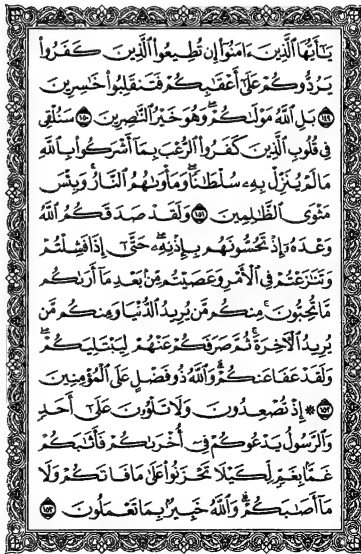 يَـٰٓأَيُّهَا ٱلَّذِينَ ءَامَنُوٓا۟ إِن تُطِيعُوا۟ ٱلَّذِينَ كَفَرُوا۟
يَرُدُّوكُمْ عَلَىٰٓ أَعْقَـٰبِكُمْ فَتَنقَلِبُوا۟ خَـٰسِرِينَ
١٤٩ بَلِ ٱللَّهُ مَوْلَىٰكُمْ ۖ وَهُوَ خَيْرُ ٱلنَّـٰصِرِينَ ١٥٠ سَنُلْقِى
فِى قُلُوبِ ٱلَّذِينَ كَفَرُوا۟ ٱلرُّعْبَ بِمَآ أَشْرَكُوا۟ بِٱللَّهِ
مَا لَمْ يُنَزِّلْ بِهِۦ سُلْطَـٰنًا ۖ وَمَأْوَىٰهُمُ ٱلنَّارُ ۚ وَبِئْسَ
مَثْوَى ٱلظَّـٰلِمِينَ ١٥١ وَلَقَدْ صَدَقَكُمُ ٱللَّهُ
وَعْدَهُۥٓ إِذْ تَحُسُّونَهُم بِإِذْنِهِۦ ۖ حَتَّىٰٓ إِذَا فَشِلْتُمْ
وَتَنَـٰزَعْتُمْ فِى ٱلْأَمْرِ وَعَصَيْتُم مِّنۢ بَعْدِ مَآ أَرَىٰكُم
مَّا تُحِبُّونَ ۚ مِنكُم مَّن يُرِيدُ ٱلدُّنْيَا وَمِنكُم مَّن
يُرِيدُ ٱلْـَٔاخِرَةَ ۚ ثُمَّ صَرَفَكُمْ عَنْهُمْ لِيَبْتَلِيَكُمْ ۖ
وَلَقَدْ عَفَا عَنكُمْ ۗ وَٱللَّهُ ذُو فَضْلٍ عَلَى ٱلْمُؤْمِنِينَ
١٥٢ ۞ إِذْ تُصْعِدُونَ وَلَا تَلْوُۥنَ عَلَىٰٓ أَحَدٍ
وَٱلرَّسُولُ يَدْعُوكُمْ فِىٓ أُخْرَىٰكُمْ فَأَثَـٰبَكُمْ
غَمًّۢا بِغَمٍّ لِّكَيْلَا تَحْزَنُوا۟ عَلَىٰ مَا فَاتَكُمْ وَلَا
مَآ أَصَـٰبَكُمْ ۗ وَٱللَّهُ خَبِيرٌۢ بِمَا تَعْمَلُونَ ١٥٣